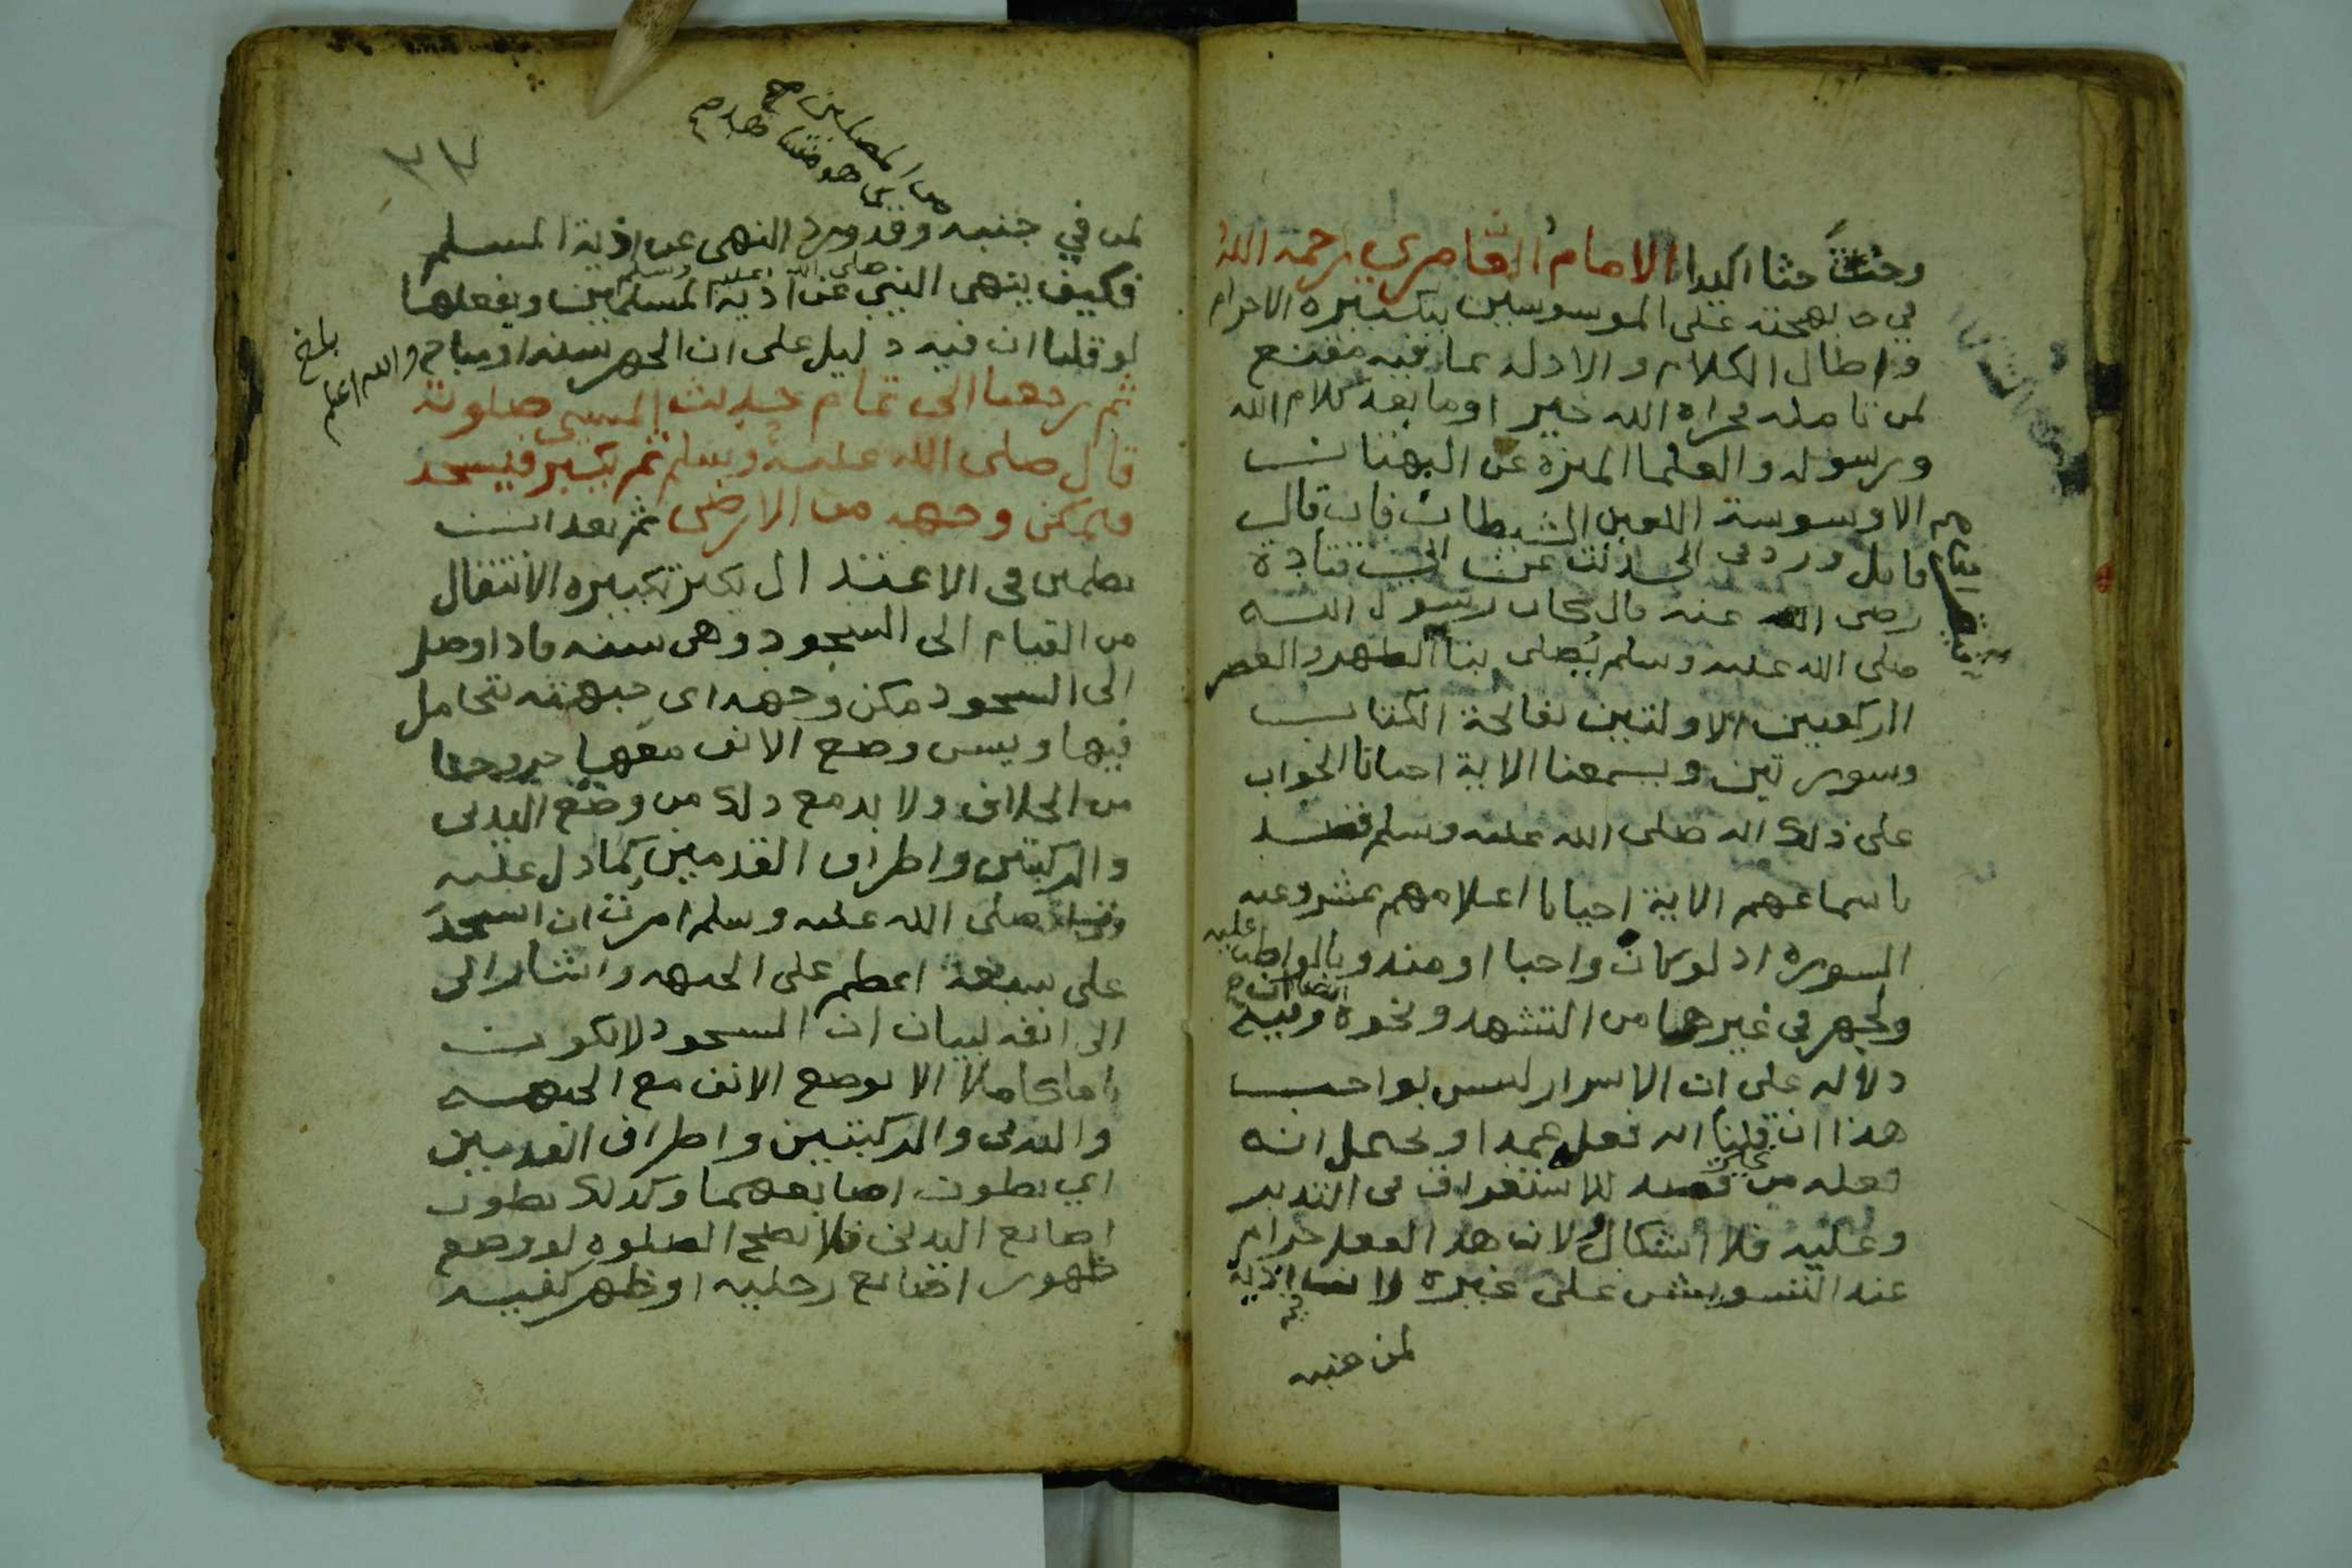 وحُثَّ حثا اكيدا الامام القاصري رحمه الله
في على الموسوسين بتكبيره الاحرام
واطال الكلام والادله بما فيه مقنع
لمن تامله فجزاه الله خير او ما بعد كلام الله
ورسوله والعلما المنزه عن البهتان
الا وسوسة اللعين الشيطان فان قال
قايل ورد في الحديث عن ابي قتادة
رضي الله عنه قال كان رسول الله
صلى الله عليه وسلم يُصلي بنا الظهر والعصر
الركعتين الاولتين بفاتحة الكتاب
وسورتين ويسمعنا الاية احيانا الجواب
على ذلك انه صلى الله عليه وسلم قصد
باسماعهم الاية احيانا اعلامهم بمشروعيه
السورة اذ لو كان واجبا او مندوبا لواظب عليه
ولجهر في غيرها من التشهد ونحوه وفيه ايضا
دلاله على ان الاسرار ليس بواجب
هذا ان قلنا انه فعل عمدا او يحتمل انه
فعله من غير قصد للاستغراق في التدبر
وعليه فلا اشكال ولان هذا الفعل حرام
عند التشويش على غيره اذية
لمن جنبه
لمن في جنبه وقد ورد النهي عن اذية المسلم
فكيف ينهى النبي صلى الله عليه وسلم عن اذية المسلمين ويفعلها
لو قلنا ان فيه دليل على ان الجهر سنه او مباح والله اعلم
بلغ
ثم رجعنا الى تمام حديث المسيء صلوته
قال صلى الله عليه وسلم ثم يكبر فيسجد
فيمكن وجهه من الارض ثم بعد ان
يطمين في الاعتدال يكبر تكبيره الانتقال
من القيام الى السجود وهي سنه فاذا وصل
الى السجود مكن وجهه اي جبهته بتحامل
فيها ويسن وضع الانف معها خروجا
من الخلاف ولا بد مع ذلك من وضع اليدين
والركبتين واطراف القدمين كما دل عليه
صلى الله عليه وسلم امرت ان اسجد
على سبعة اعظم على الجبهه واشار الى
الى انفه لبيان ان السجود لا يكون
تاما كاملا الا بوضع الانف مع الجبهه
واليدين والركبتين واطراف القدمين
اي بطون اصابعهما وكذلك بطون
اصابع اليدين فلا تصح الصلوة لو وضع
ظهور اصابع رجليه او ظهر كفيه